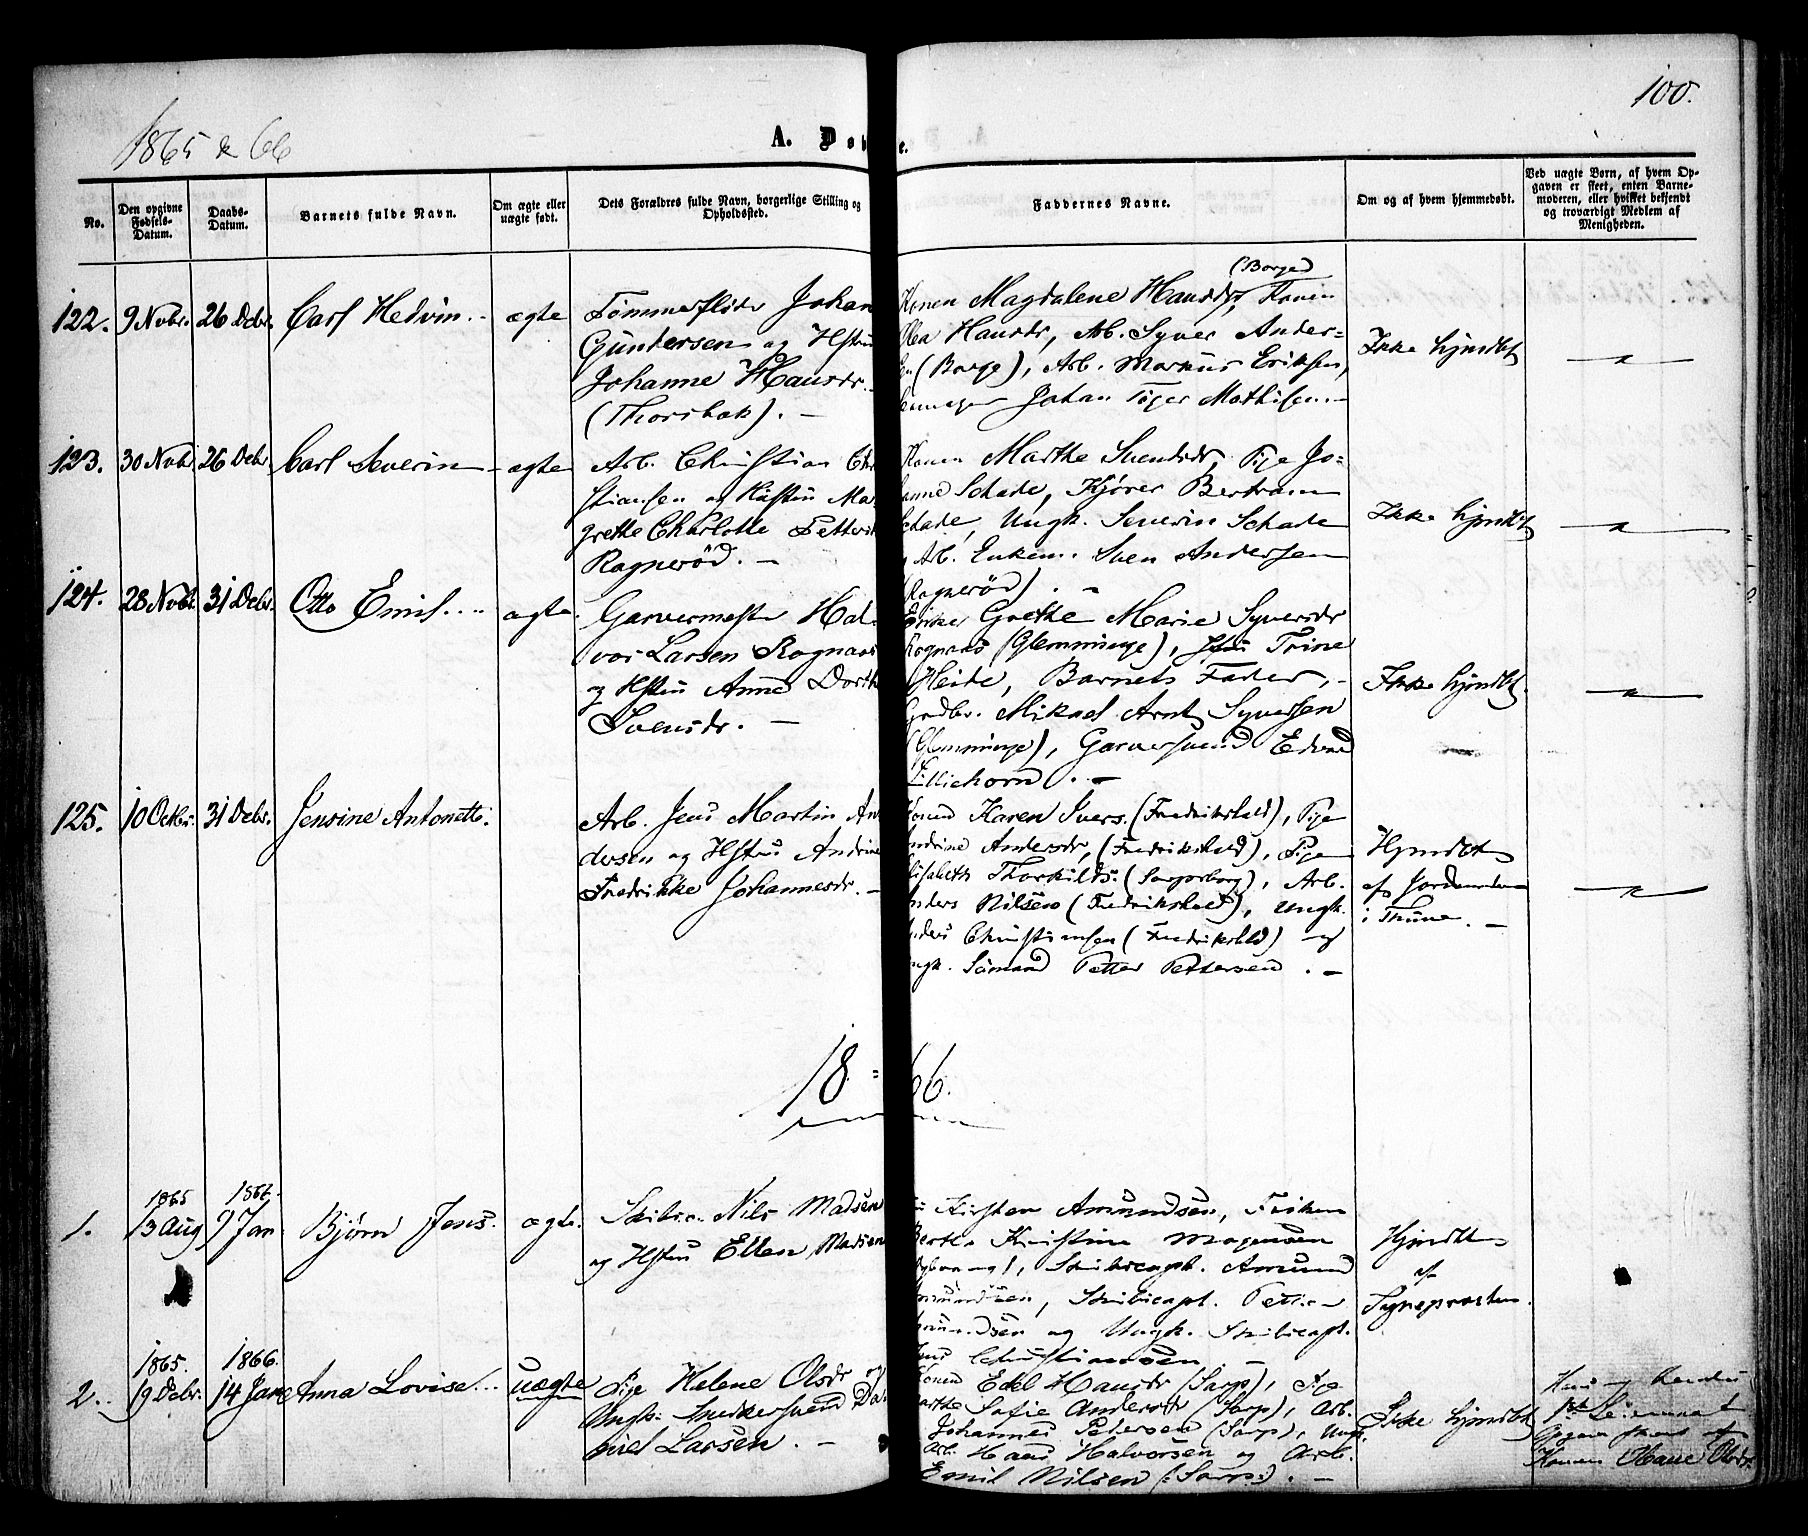 100.
1865 & 66
A. Døb e.
No.
Den opgivne Fødsels-Datum.
Daabs-Datum.
Barnets fulde Navn.
Om ægte eller uægte født.
Dets Forældres fulde Navn, borgerlige Stilling og Opholdssted.
Faddernes Navne.
Om og af hvem hjemmedøbt.
Ved uægte Børn, af hvem Op-
gaven er skeet, enten Barne-
moderen, eller hvilket bekjendt
og troværdigt Medlem af
Menigheden.
122. 9 Novbr. 26 Debr. Carl Hedvin. ægte
Tømmerfløder Johan
Gundersen og Hstru
Johanne Hansdr.
(Thorsbæk). —
(Borge)
Konen Magdalene Hansdr, Konen
Olea Hansdr, Arb. Syver Ander-
sen (Borge), Arb. Markus Eriksen,
Johan Tøger Mathisen.
Ikke hjmdbt
123. 30 Novbr. 26 Debr. Carl Severin ægte
Arb. Christian Chr
stiansen og Hustru Ma
grethe Charlotte Petters
Ragnerød. —
Konen Marthe Svendsdr, Pige Jo-
hanne Schade, Kjører Bertram
Schade, Ungk. Severin Schade
Arb. Enkem. Sven Andersen
(Ragnerød). —
Ikke hjmdbt
124. 28 Novbr. 31 Debr. Otto Emil. ægte
Garvermester Hal-
vor Larsen Rognaas
og Hstru Anne Dorth
Svensdr. —
Enke Grethe Marie Syversdr
Rognaas (Glemminge), Trine
Heide, Barnets Fader, -
Gudbr. Mikael Arnt Syversen
(Glemminge), Garversvend Edvard
Lilliehorn. —
Ikke hjmdbt
125. 10 Octbr. 31 Debr. Jensine Antonette.
Arb. Jens Martin An
dersen og Hstru Andrine
Fredrikke Johannesdr. —
Konen Karen Ivers. (Fredrikshald), Pige
Andrine Andersdr, (Fredrikshald), Pige
Elisabeth Thorkilds. (Sarpsborg), Arb.
Anders Nilsen (Fredrikshald), Ungk.
Anders Christiansen (Fredrikshald) og
Ungk. Sømand Petter Pettersen. —
Hjmdbt
af Jordemoderen
i Thune. —
18 = 66.
1. 1865 13 Aug 1866. 7 Jan Bjørn Jens. ægte.
Skibsc. Nils Madsen
og Hstru Ellen Madsen
Kirsten Amundsen, Frøken
Berthe Kristine Mogensen
Skibscapt. Amund
Amundsen, Skibscapt. Petter
Amundsen og Ungk. Skibscapt.
Jens Christiansen —
Hjmdbt
af
Sognepræsten.
2. 1865. 19 Debr. 1866. 14 Jan Anna Lovise. uægte
Pige Helene Olsdr og
Ungk. Snekkersvend Da-
niel Larsen. —
Konen Edel Hansdr (Sarp), Pige
Marthe Sofie Andersdr (Sarp), Arb.
Johannes Pedersen (Sarp), Ungk.
Arb. Hans Halvorsen og Arb.
Emil Nilsen (Sarp). —
Ikke hjmdbt
Hans og Hendes
1ste Leiermaal
Opgaven skeet af
Konen Olea Olsdr.